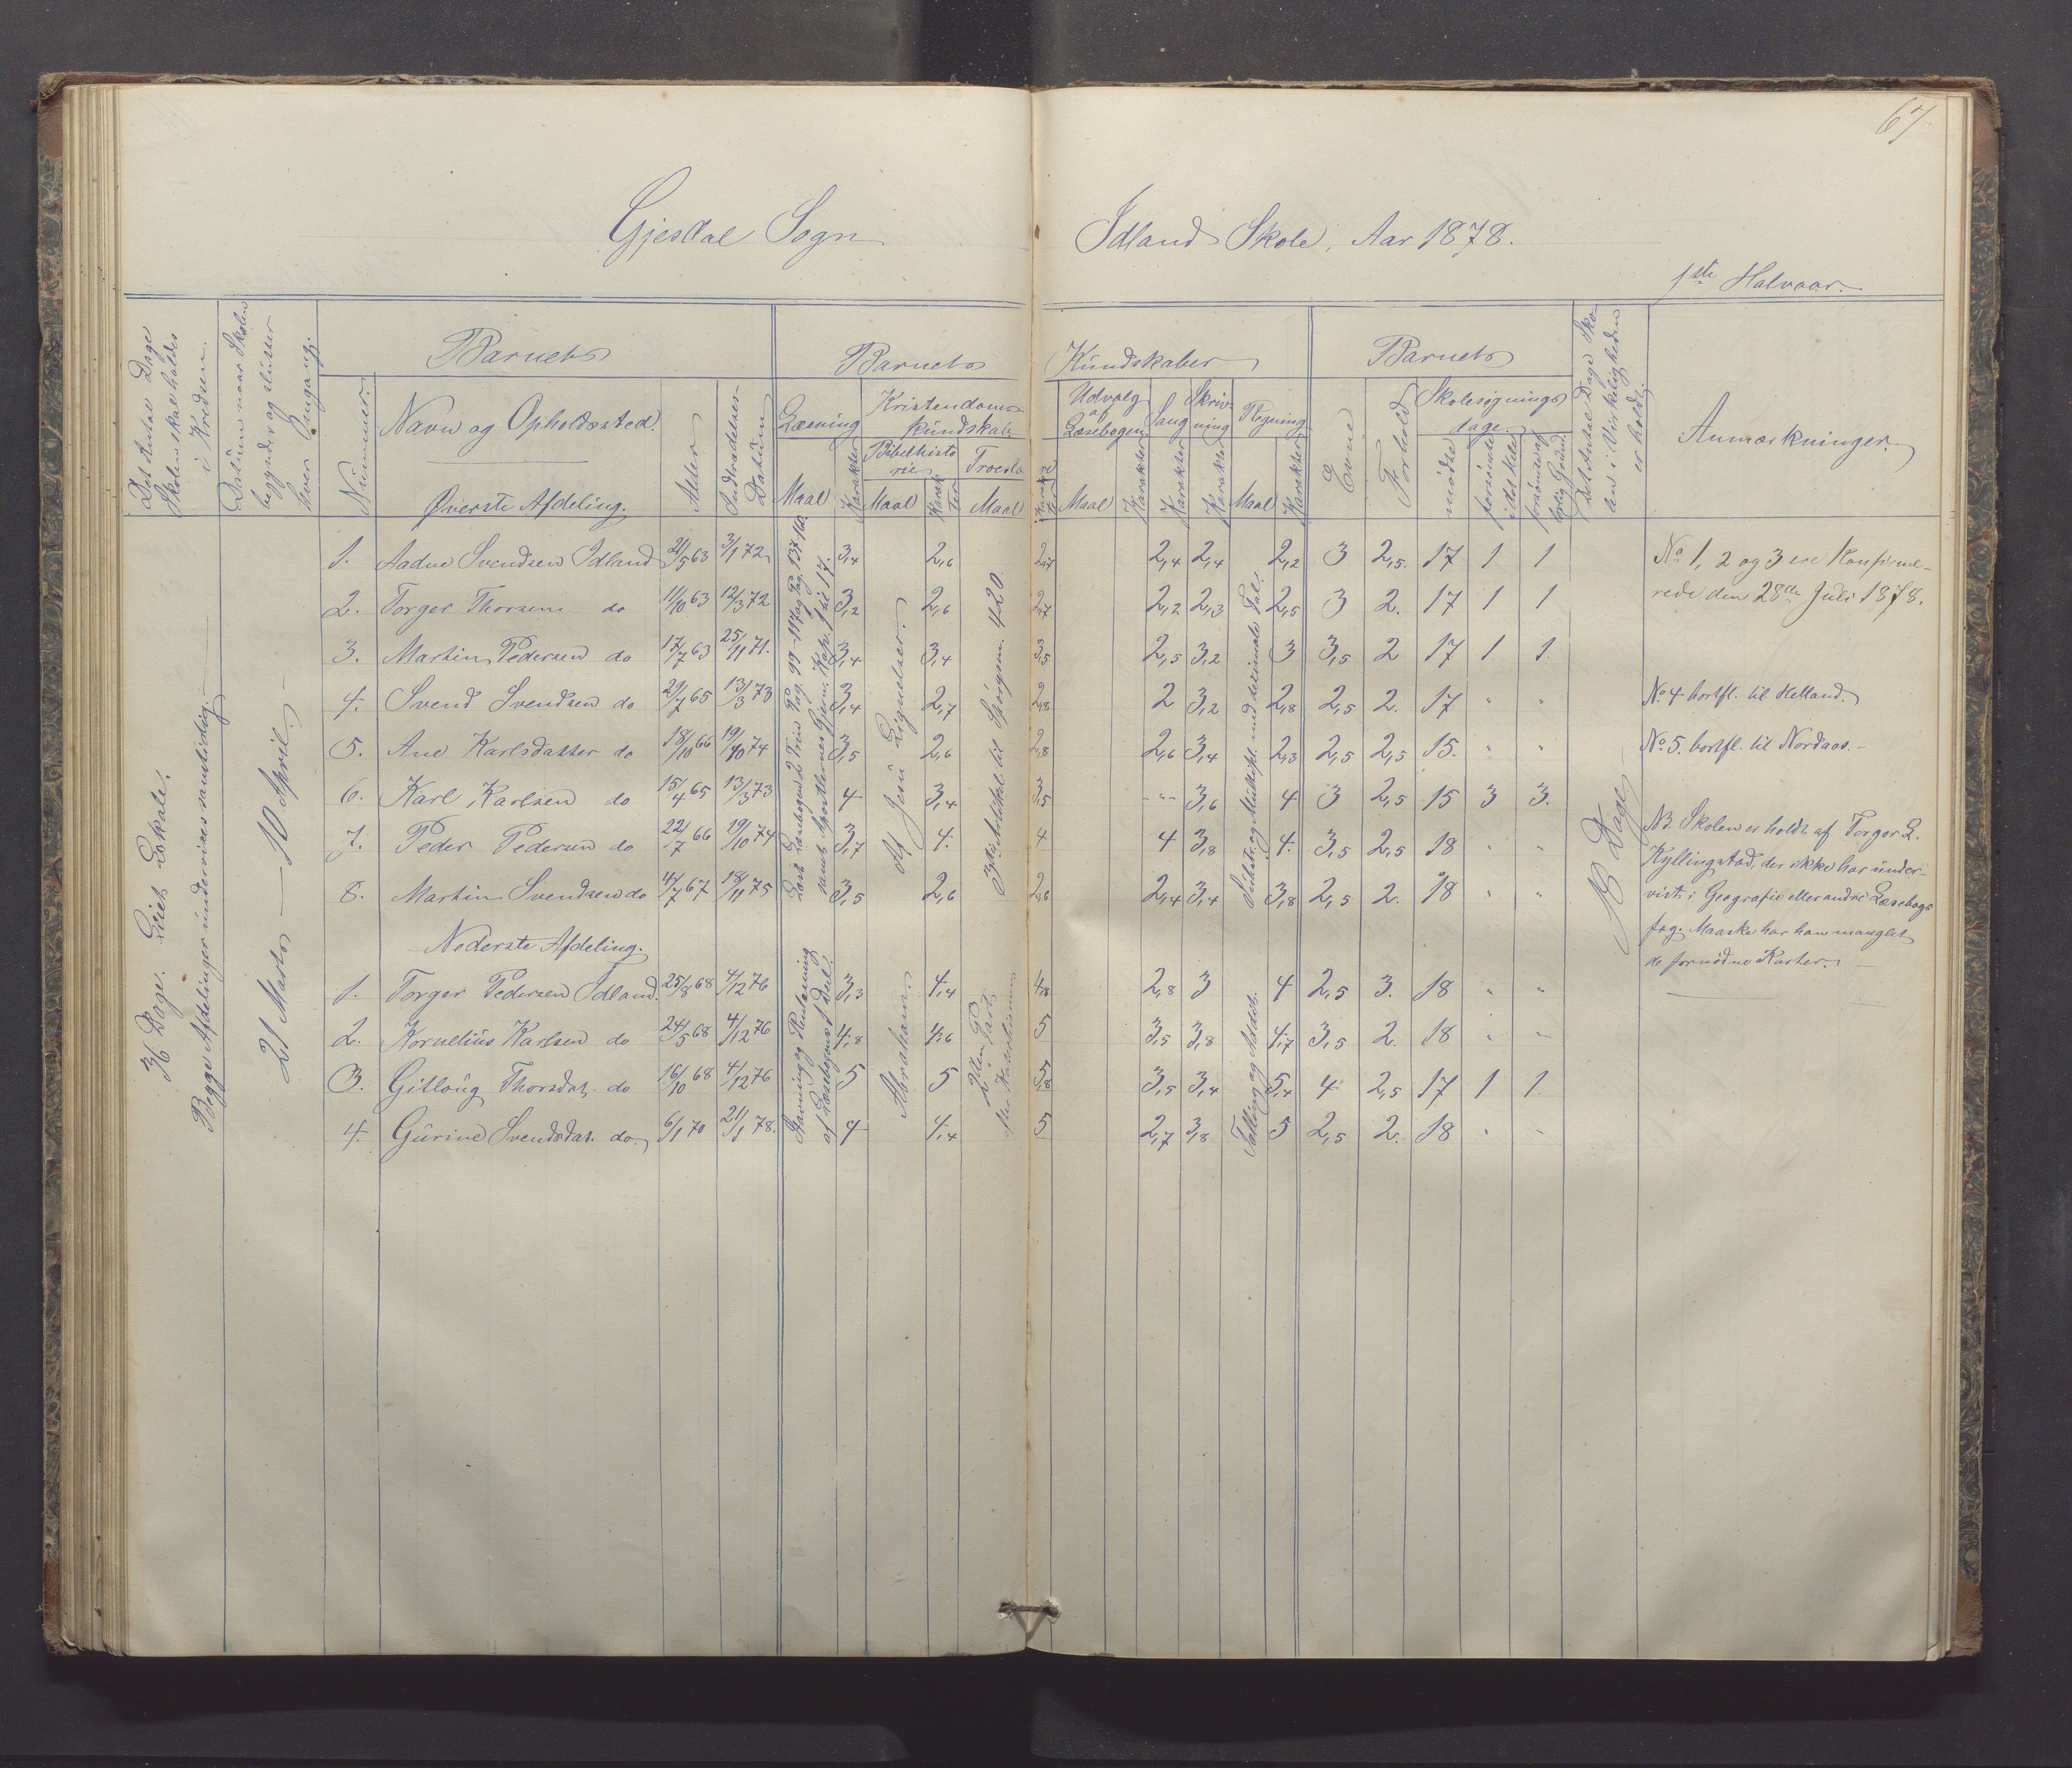 67
Gjesdal Sogn
Idland Skole, Aar 1878.
1ste Halvaar.
Det Antal Dage
Skolen skal holdes
i Kredsen.
Datum naar Skolen
begynder og slutter
hver Omgang.
Barnets
Barnets
Kundskaber
Barnets
Det Antal Dage Sko-
len i Virkeligheden
er holdt.
Anmærkninger.
Nummer.
Navn og Opholdssted.
Øverste Afdeling.
Alder
Indtrædelses-
Datum
Læsning
Maal
Karakter
Kristendoms-
kundskab.
Bibelhisto
rie.
Maal
Karak
ter
Troeslæ
re
Maal
Karak
ter
Udvalg
af
Læsebogen
Maal
Karakter
Sang
Karakter
Skriv-
ning
Karakter
Regning
Maal
Karakter
Evne
Forhold
Skolesøgnings
dage.
mødte
forsømte
i det Hele
forsømte af
lovlig Grund.
36 Dage. Leiet Lokale.
Begge Afdelinger undervises samtidig.
21 Marts — 10 April.
1. Aadne Svendsen Idland 21/5 63 3/1 72 3,4 2,6 2,7 2,4 2,4 2,2 3 2,5 17 1 1
2. Torger Thorsen do 11/10 63 12/3 72 3,2 2,6 2,7 2,2 2,3 2,5 3 2. 17 1 1
3. Martin Pedersen do 17/7 63 25/11 71. 3,4 3,4 3,5 2,5 3,2 3 3,5 2 17 1 1
4. Svend Svendsen do 29/7 65 13/3 73 3,4 2,7 2,8 2 3,2 2,8 2,5 2. 17 " "
5. Ane Karlsdatter do 18/10 66 19/10 74 3,5 2,6 2,8 2,6 3,4 2,3 2,5 2,5 15. " "
6. Karl Karlsen do 15/4 65 13/3 73 4 3,4 3,5 - " - 3,6 4 3 2,5 15 3 3.
7. Peder Pedersen do 22/7 66 19/10 74 3,7 4. 4 4 3,8 4. 3,5 2,5 18 " "
8. Martin Svendsen do 4/7 67 18/11 75 3,5 2,6 2,6 2,4 3,4 3,8 2,5 2. 18 " "
Læst Læsebogens 2 Trin Pag. 99-117 og Pag. 137-140.
samt Apostlernes Gjern. Kap. 1 til 17.
Af Jesu Lignelser.
3die Artikel til Spørgsm. 420.
Subtr. og Multipl. med decimale Tal.
18 Dage
Nederste Afdeling.
1. Torger Pedersen Idland. 25/8 68 4/12 76 3,3 4,4 4,8 2,8 3 4 2,5 3. 18 " "
2. Kornelius Karlsen do 24/5 68 4/12 76 4,8 4,6 5 3,5 3,8 4,7 3,5 2. 18 " "
3. Gitlaug Thorsdat. do 16/10 68 4/12 76 5 5 5,8 3,5 3,4 5,4 4 2,5 17 1 1.
4. Gurine Svendsdat. do. 6/1 70 21/1 78. 4 4,4 5 2,7 3,8 5 2,5 2. 18 " "
Stavning og Renlæsning
af Læsebogens 1 Del.
Abrahams.
2den Part
Tælling og Addit.
No 1, 2 og 3 ere Konfirme-
rede den 28de Juli 1878.
No 4 bortfl. til Helland.
No 5. bortfl. til Nordaas. -
NB. Skolen er holdt af Torger L.
Kyllingstad, der ikke har under-
vist i Geografie eller andre Læsebogs
fag. Maaske har han manglet
de fornødne Karter.